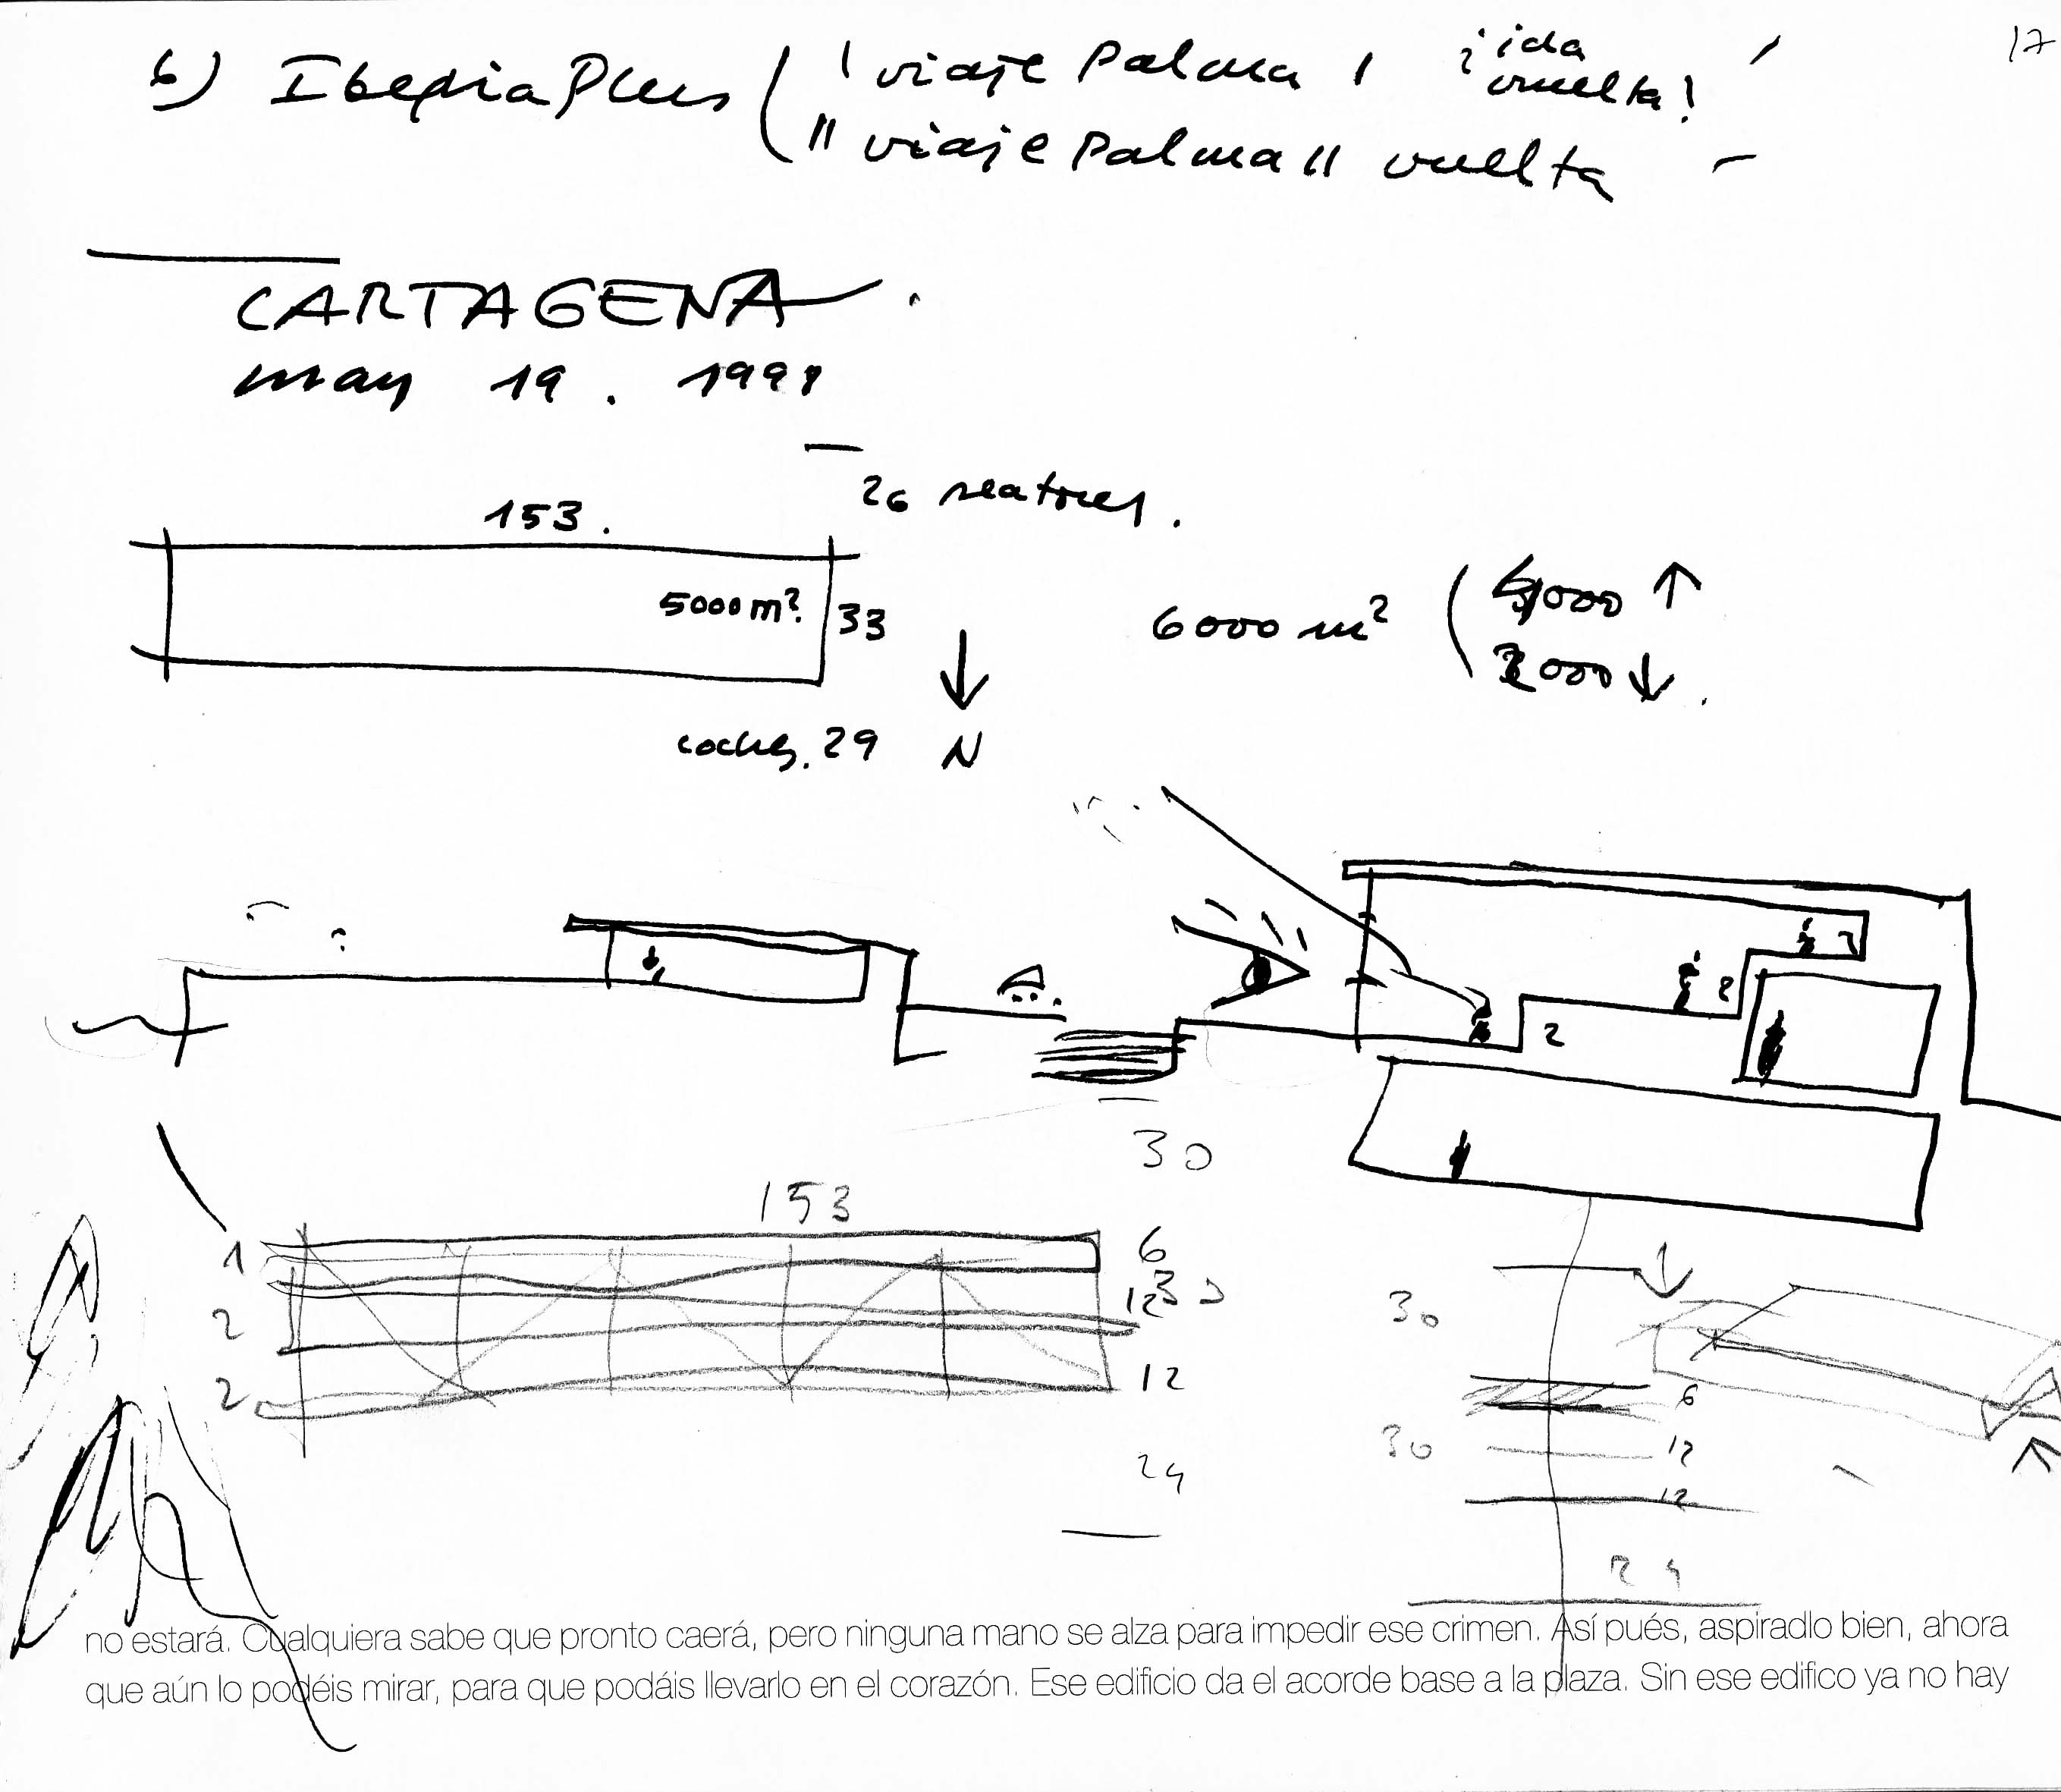 17
b) IberiaPlus ( 1 viaje Palma 1 ¿ida vuelta?
11 viaje Palma 11 vuelta -
CARTAGENA.
may 19. 1998
153.
5000 m².
33
6000 m² ( 4000 ↑
2000 ↓.
coches. 29
N
2
2
2
30
153
1
6
12
30
2
12
2
24
30
6
30
12
12
24
no estará. Cualquiera sabe que pronto caerá, pero ninguna mano se alza para impedir ese crimen. Así pués, aspiradlo bien, ahora
que aún lo podéis mirar, para que podáis llevarlo en el corazón. Ese edificio da el acorde base a la plaza. Sin ese edifico ya no hay